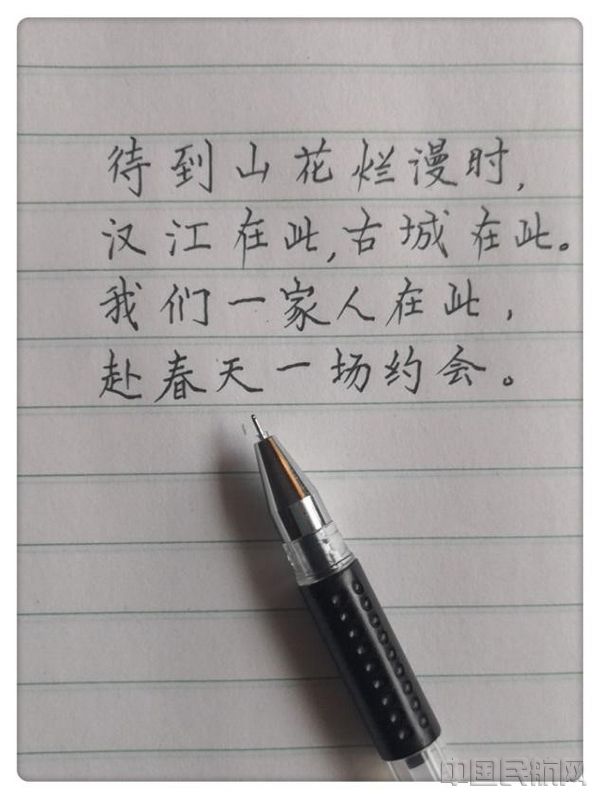 待到山花烂漫时,
汉江在此,古城在此。
我们一家人在此,
赴春天一场约会。
中国民航网